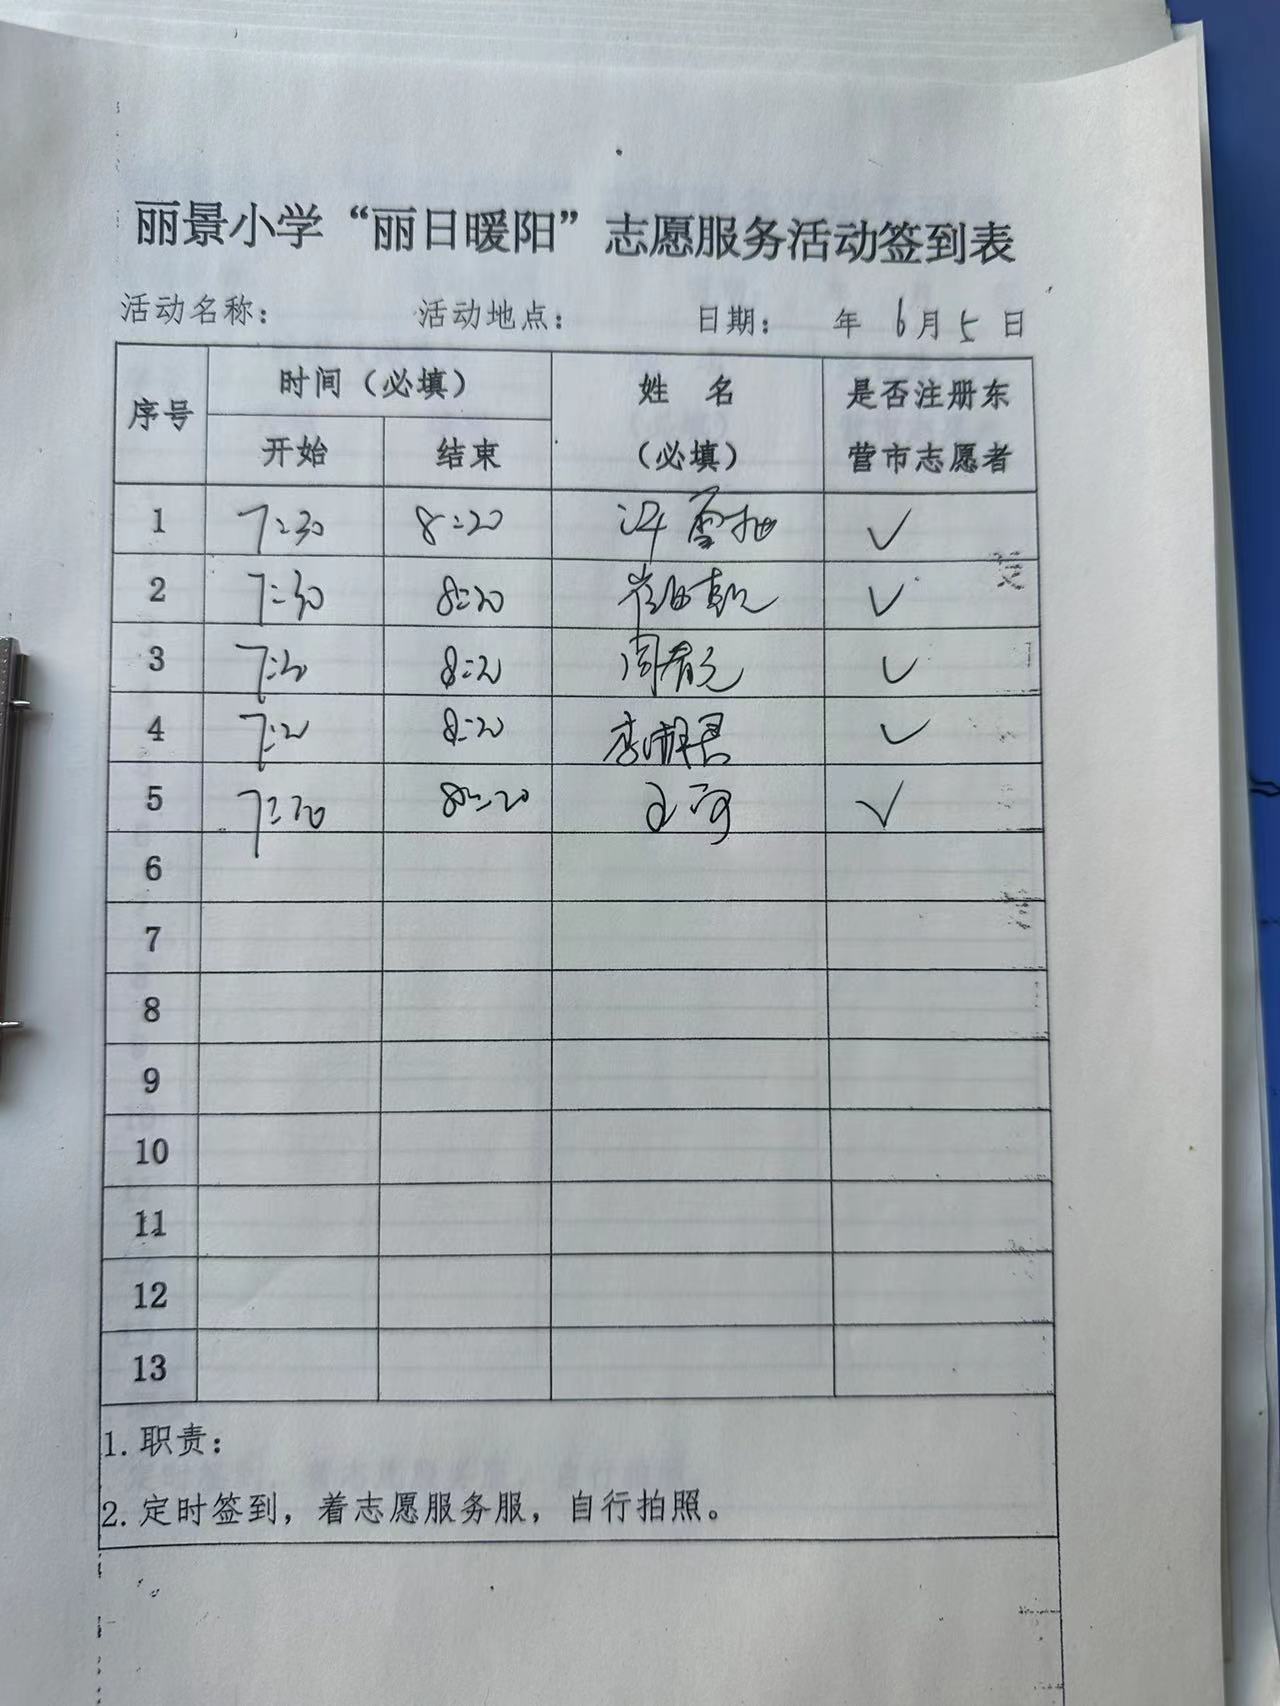 丽景小学“丽日暖阳”志愿服务活动签到表
活动名称： 活动地点： 日期： 年 6月5日
序号 时间（必填） 姓 名（必填） 是否注册东营市志愿者
开始 结束
1 7:30 8:20 ✓
2 7:30 8:20 ✓
3 8:20 周君元 ✓
4 8:20 ✓
5 8:20 王河 ✓
6
7
8
9
10
11
12
13
1.职责：
2.定时签到，着志愿服务服，自行拍照。